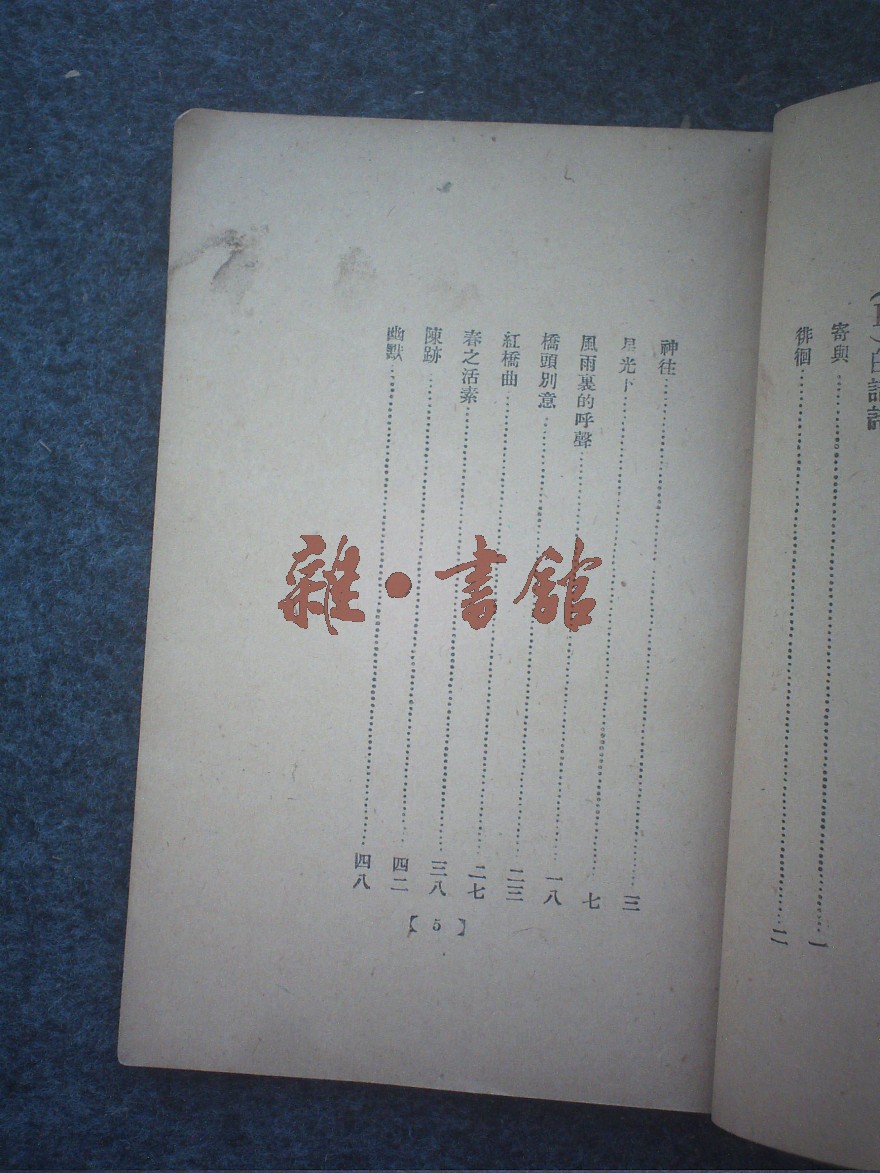 寄與……一
徘徊……二
神往……三
星光下……七
風雨裏的呼聲……一八
橋頭別意……二三
紅橋曲……二七
春之活素……三八
陳跡……四二
幽默……四八
【5】
雜·書館